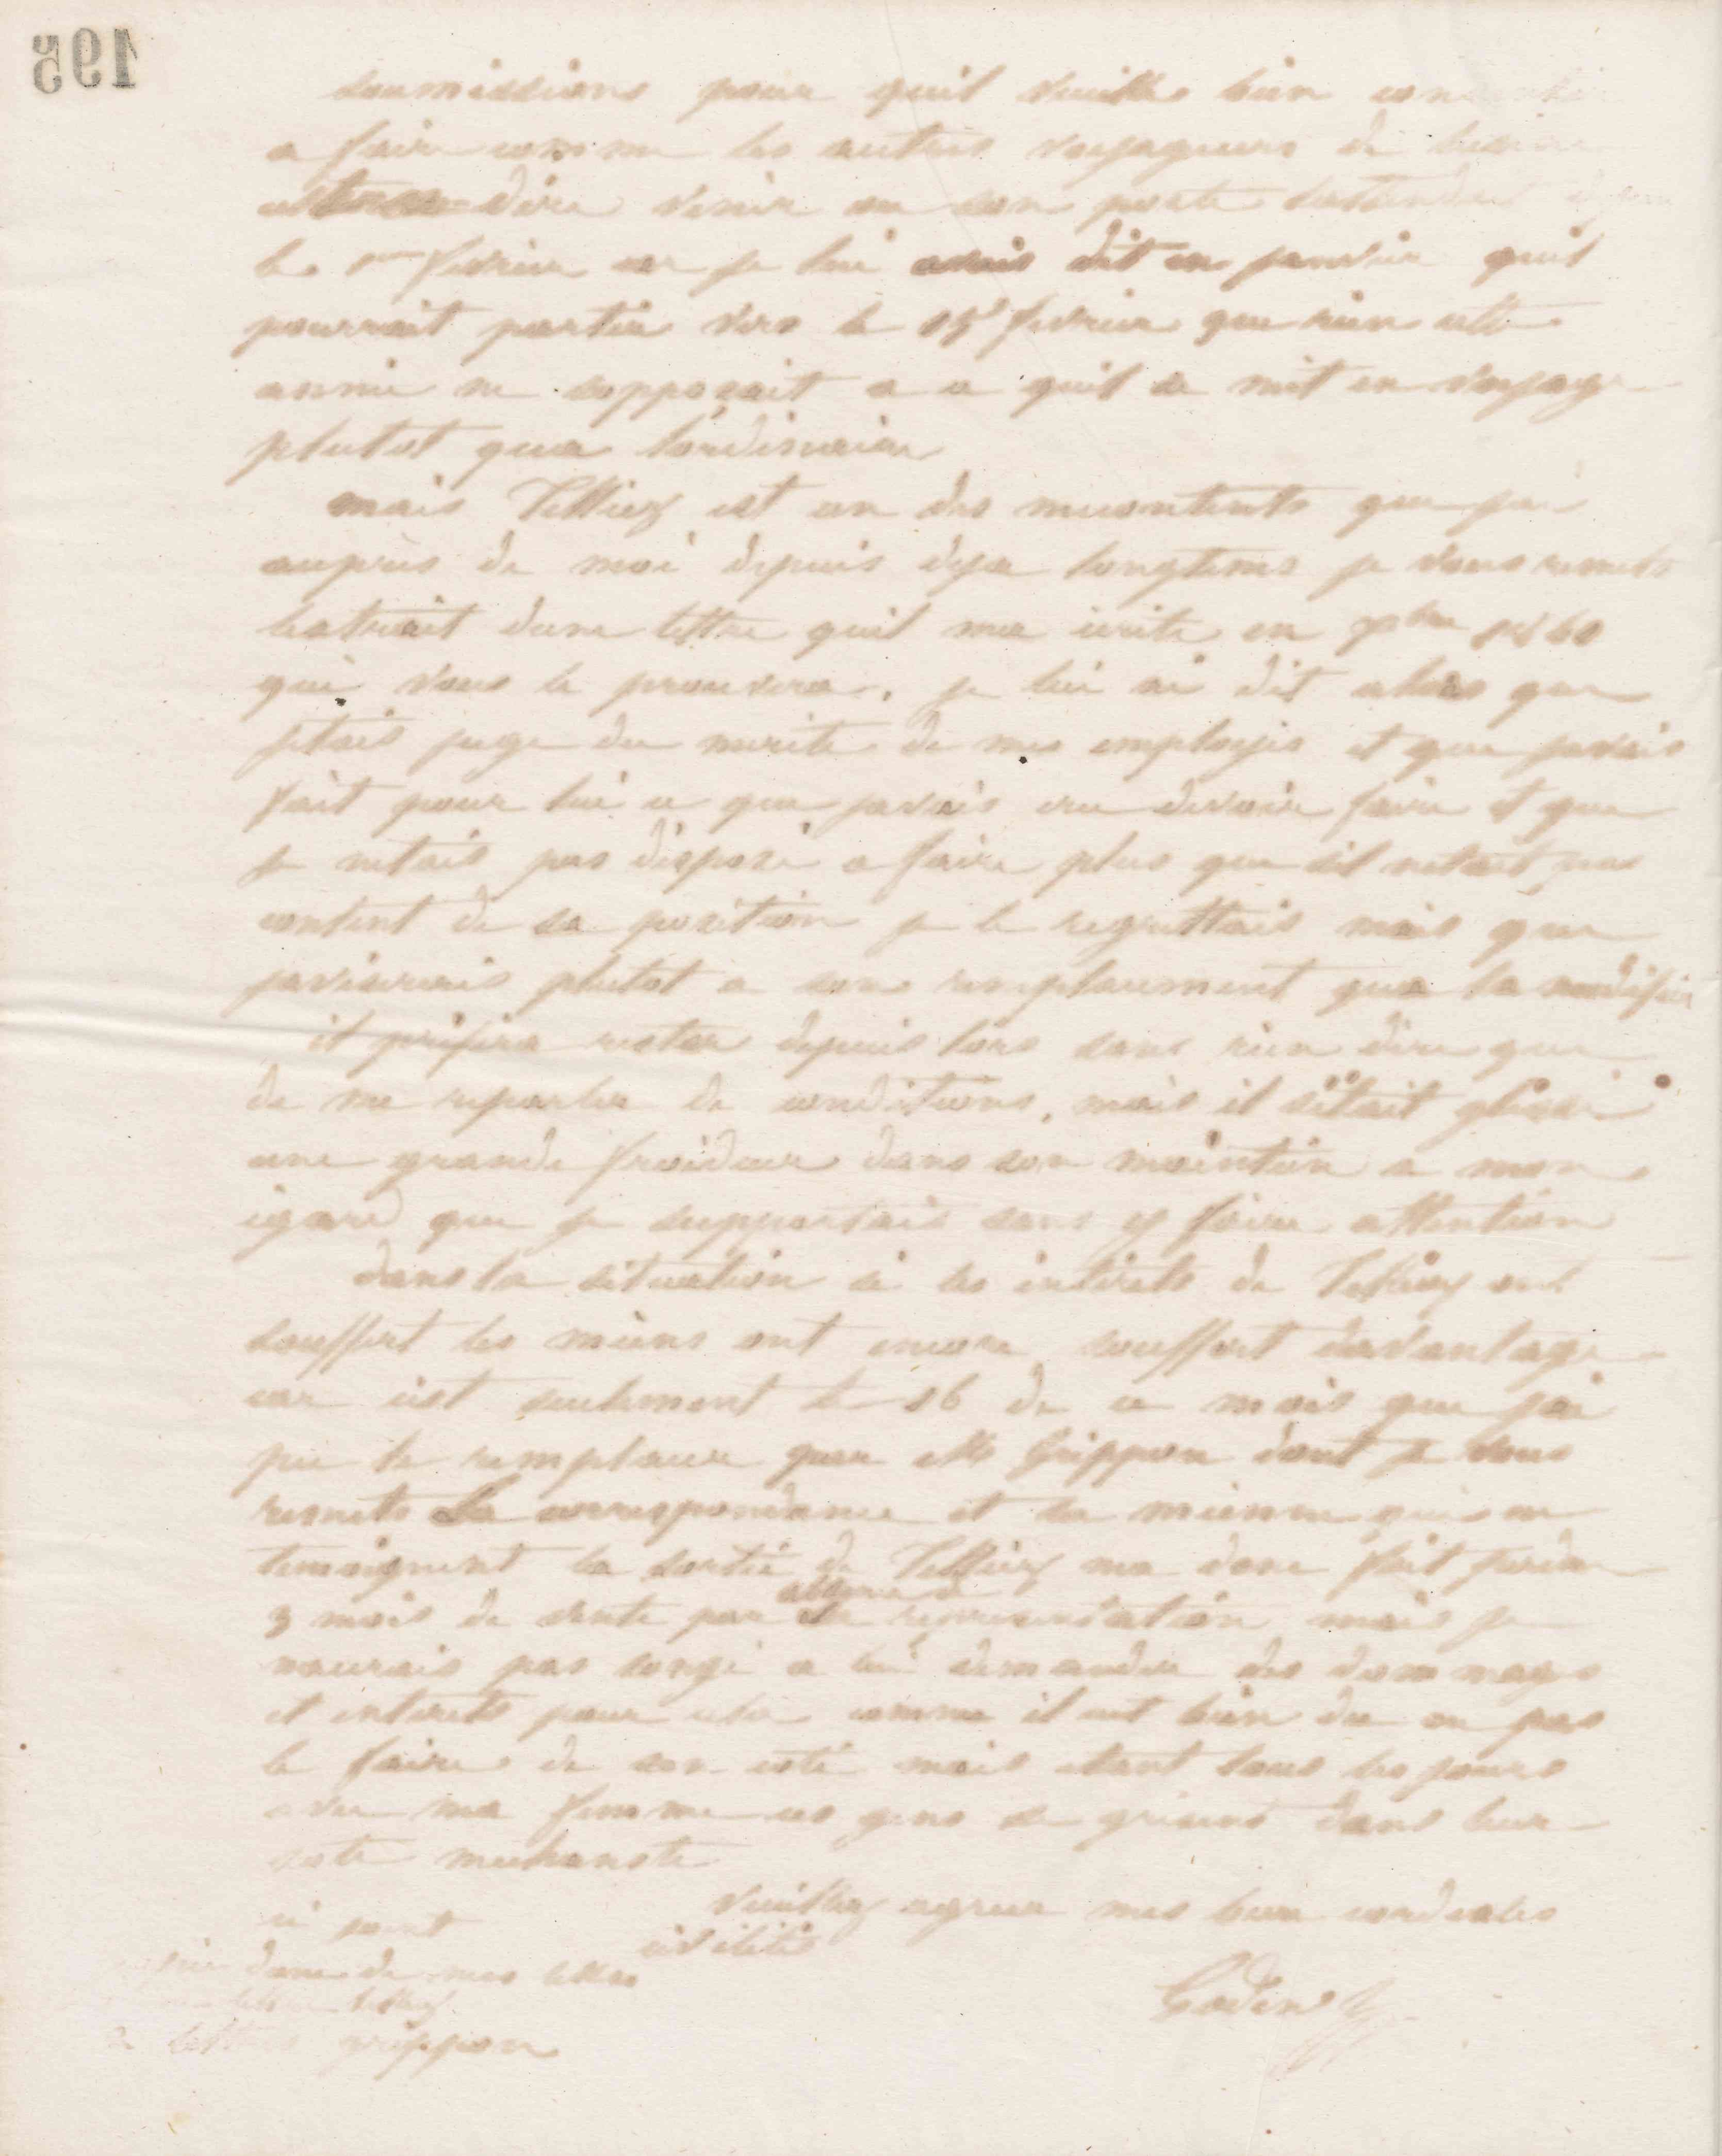 195
soumissions pour quil veuille bien
a faire comme les autres voyageurs de
dire venir a son poste
le 1er fevrier car je lui avais dit en janvier quil
pourrait partir vers le 15 fevrier que rien cette
annee ne sopposait a ce quil se mit en voyage
plutot qua lordinaire
mais Telliez est un des mecontents que jai
aupres de moi depuis deja longtems je vous remets
lextrait dune lettre quil ma ecrite en 7bre 1860
qui vous le prouvera. je lui ai dit alors que
jetais juge du merite de mes employes et que javais
fait pour lui ce que javais cru devoir faire et que
je netais pas disposé a faire plus que sil netait pas
content de sa position je le regrettais mais que
javiserais plutot a son remplacement qua la modifier
il préféra rester depuis lors sans rien dire que
de me reparler de conditions, mais il sétait glissé
une grande froideur dans son maintien a mon
égard que je supportais sans y faire attention
dans la situation si les intérets de Telliez ont
souffert les miens ont encore souffert davantage
car cest seulement le 16 de ce mois que jai
pu le remplacer par Mr Grippon dont je vous
remets la correspondance et la mienne qui en
temoignent la sortie de Telliez ma donc fait perdre
3 mois de vente par sa representation mais je
naurais pas songé a lui demander des dommages
et intérets pour cela comme il eut bien du ne pas
le faire de son coté mais etant tous les jours
avec ma femme ces gens se grisent dans leur
sote mechanceté
Veuillez agreer mes bien cordiales
civilités
Godin
ci joint
dune de mes lettres
lettre Telliez
lettres grippon